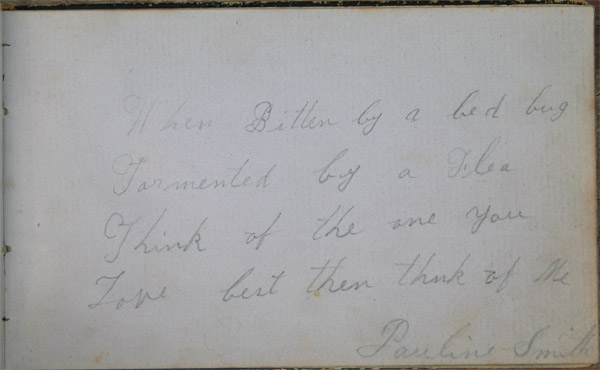 When Bitten by a bed bug
Tormented by a Flea
Think of the one You
Love best then thnk of Me
Pauline Smith